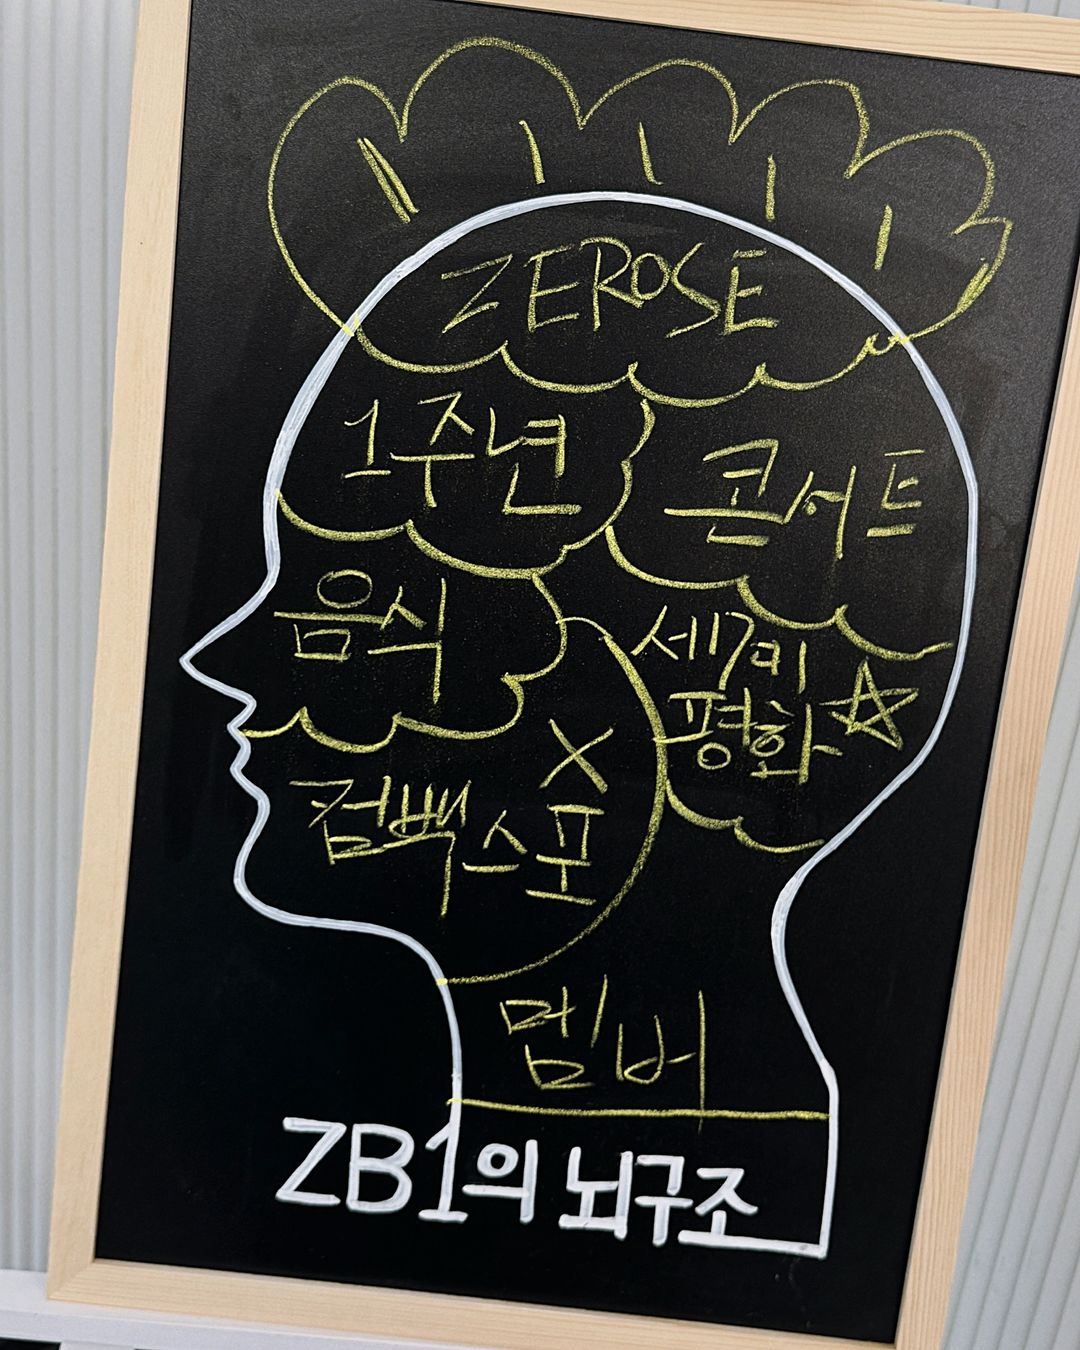 ZEROSE
1주년
콘서트
음식
세계
평화
X
컴백 스포
멤버
ZB1의 뇌구조